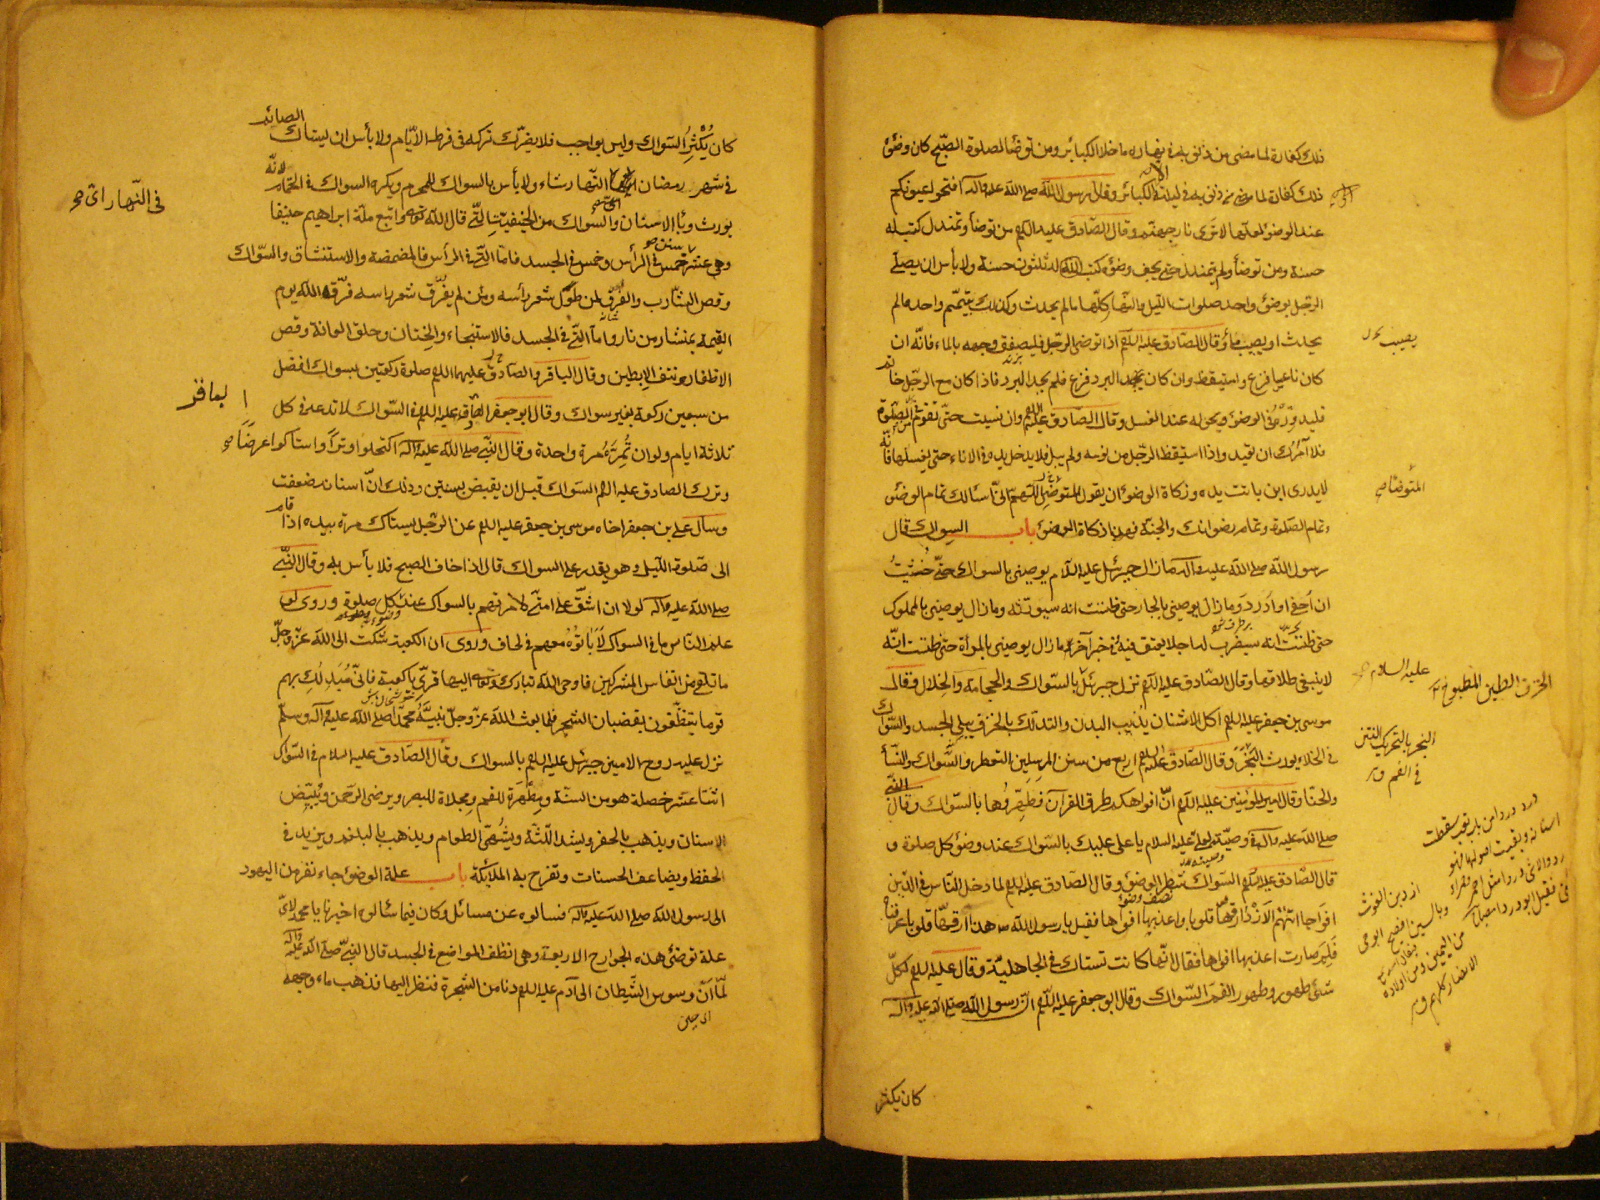 ذلك كفارة لما مضى من ذنوبه في نهاره ما خلا الكبائر ومن توضأ لصلوة الصبح كان وضوئ
ذلك كفارة لما مضى من ذنوبه في ليلته الا الكبائر وقال رسول الله صلى الله عليه وآله افتحوا عيونكم
عند الوضوء لعلها لا ترى نار جهنم وقال الصادق عليه السلم من توضأ وتمندل كتب له
حسنة ومن توضأ ولم يتمندل حتى يجف وضوئه كتب الله له ثلثون حسنة ولا بأس ان يصلى
الرجل بوضوء واحد صلوات الليل والنهار كلها ما لم يحدث وكذلك بتيمم واحد ما لم
يحدث او يصيب ماء وقال الصادق عليه السلم اذا توضى الرجل فليصفق وجهه بالماء فانه ان
كان ناعسا فزع واستيقظ وان كان يجد البرد فزع فلم يجد البرد فاذا كان مع الرجل خاتم
فليدوره فى الوضوء ويحوله عند الغسل وقال الصادق عليه السلم وان نسيت حتى تقوم من الصلوة
فلا آمرك ان تعيد واذا استيقظ الرجل من نومه ولم يبل فلا يدخل يده فى الاناء حتى يغسلها فانه
لا يدرى اين باتت يده وزكاة الوضوء ان يقول المتوضى اللهم انى اسئالك تمام الوضوء
وتمام الصلوة وتمام رضوانك والجنة فهذا زكاة الوضوء باب السواك قال
رسول الله صلى الله عليه وآله ما زال جبرئيل عليه السلام يوصينى بالسواك حتى خشيت
ان احفى او ادرد وما زال يوصينى بالجار حتى ظننت انه سيورثه وما زال يوصينى بالمملوك
حتى ظننت انه سيضرب له اجلا يعتق فيه وفى خبر آخر وما زال يوصينى بالمرأة حتى ظننت انه
لا ينبغى طلاقها وقال الصادق عليه السلم نزل جبرئيل بالسواك والحجامة والخلال وقال
موسى بن جعفر عليه السلم اكل الاشنان يذيب البدن والتدلك بالخزف يبلى الجسد والسواك
فى الخلاء يورث البخر وقال الصادق عليه السلم اربع من سنن المرسلين التعطر والسواك والنسأ
والحنا وقال امير المؤمنين عليه السلم ان افواهكم طرق القرآن فطهروها بالسواك وقال النبى
صلى الله عليه وآله فى وصيته لعلى عليه السلام يا على عليك بالسواك عند وضوء كل صلوة و
قال الصادق عليه السلم السواك شطر الوضوء وقال الصادق عليه السلم لما دخل الناس فى الدين
افواجا اتتهم الازد ارقها قلوبا واعذبها افواها فقيل يا رسول الله هذا ارقها قلوبا عرفناه
فلم صارت اعذبها افواها فقال انها كانت تستاك فى الجاهلية وقال عليه السلم لكل
شئ طهور وطهور الفم السواك وقال ابو جعفر عليه السلم ان رسول الله صلى الله عليه وآله
كان يكثر
يصيب
المتوضأ
عليه السلام
الخزف الطين المطبوخ
البخر بالتحريك النتن
فى الفم
كان يكثر السواك وليس بواجب فلا يضرك تركه فى فرط الايام ولا بأس ان يستاك الصائم
فى شهر رمضان اى النهار شاء ولا بأس بالسواك للمحرم ويكره السواك فى الحمام لانه
يورث وباء الاسنان والسواك من الحنيفية التى قال الله تعالى واتبع ملة ابراهيم حنيفا
وهى عشر سنن خمس فى الرأس وخمس فى الجسد فاما التى فى الرأس فالمضمضة والاستنشاق والسواك
وقص الشارب والفرق لمن طول شعر رأسه ومن لم يفرق شعر راسه فرقه الله يوم
القيمة بمنشار من نار واما التى فى الجسد فالاستنجاء والختان وحلق العانة وقص
الاظفار ونتف الابطين وقال الباقر والصادق عليهما السلم صلوة ركعتين بسواك افضل
من سبعين ركعة بغير سواك وقال ابو جعفر الباقر عليه السلم فى السواك لا تدعه فى كل
ثلاثة ايام ولو ان تمره مرة واحدة وقال النبى صلى الله عليه وآله اكتحلوا وترا واستاكوا عرضا
وترك الصادق عليه السلم السواك قبل ان يقبض بسنتين وذلك ان اسنانه ضعفت
وسأل على بن جعفر اخاه موسى بن جعفر عليه السلم عن الرجل يستاك مرة بيده اذا قام
الى صلوة الليل وهو يقدر على السواك قال اذا خاف الصبح فلا بأس به وقال النبى
صلى الله عليه وآله لولا ان اشق على امتى لامرتهم بالسواك عند كل صلوة وروى لو
علم الناس ما فى السواك لاباتوه معهم فى لحاف وروى ان الكعبة شكت الى الله عز وجل
ما تلقى من انفاس المشركين فاوحى الله تبارك وتعالى اليها قرى يا كعبة فانى مبدلك بهم
قوما يتنظفون بقضبان الشجر فلما بعث الله عز وجل نبيه محمدا صلى الله عليه وآله وسلم
نزل عليه روح الامين جبرئيل عليه السلم بالسواك وقال الصادق عليه السلام فى السواك
اثنتا عشر خصلة هو من السنة ومطهرة للفم ومجلاة للبصر ويرضى الرحمن ويبيض
الاسنان ويذهب بالحفر ويشد اللثة ويشهى الطعام ويذهب بالبلغم ويزيد فى
الحفظ ويضاعف الحسنات وتفرح به الملائكة باب علة الوضوء جاء نفر من اليهود
الى رسول الله صلى الله عليه وآله فسالوه عن مسائل وكان فيما سألوه اخبرنا يا محمد لاى
علة توضئ هذه الجوارح الاربعة وهى انظف المواضع فى الجسد قال النبى صلى الله عليه وآله
لما ان وسوس الشيطان الى آدم عليه السلم دنا من الشجرة فنظر اليها فذهب ماء وجهه
اى حين
فى النهار اى